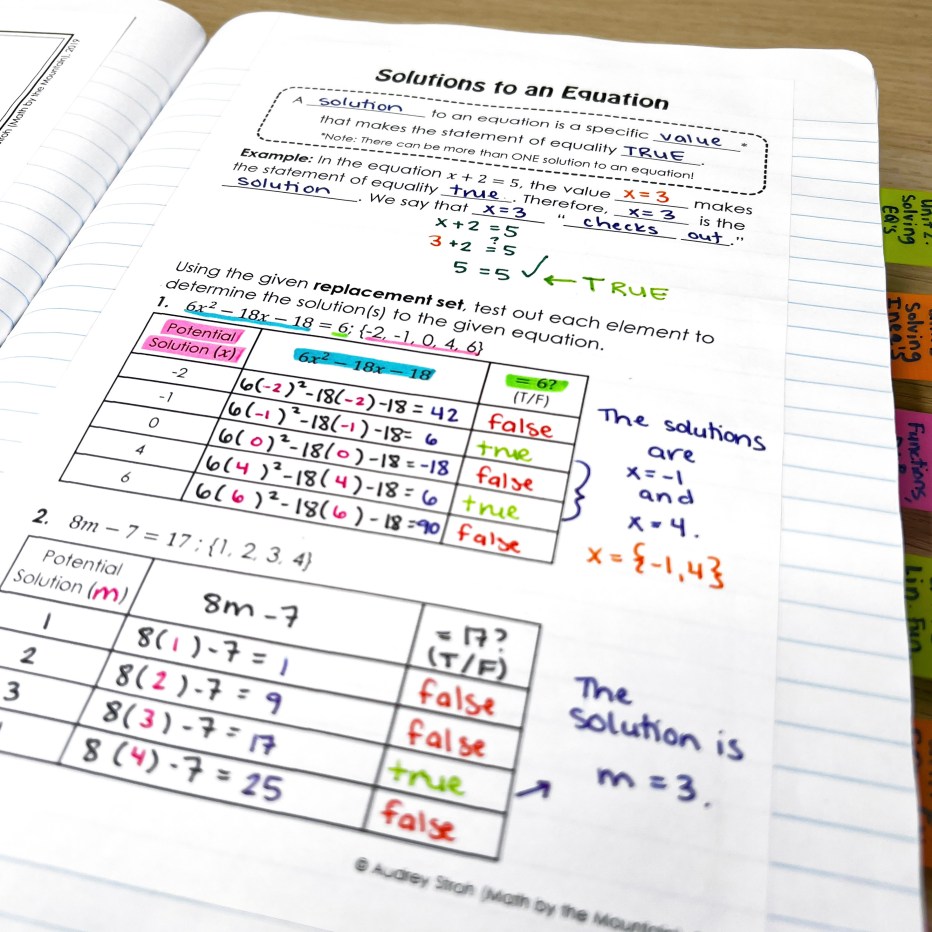 Solutions to an Equation
A solution to an equation is a specific value *
that makes the statement of equality TRUE.
*Note: There can be more than ONE solution to an equation!
Example: In the equation x + 2 = 5, the value x = 3 makes
the statement of equality true. Therefore, x = 3 is the
solution. We say that x = 3 "checks out."
x + 2 = 5
3 + 2 ≟ 5
5 = 5 ✓ ← TRUE
Using the given replacement set, test out each element to
determine the solution(s) to the given equation.
1. 6x² − 18x − 18 = 6; {-2, -1, 0, 4, 6}
Potential Solution (x) 6x² − 18x − 18 = 6? (T/F)
-2 6(-2)² - 18(-2) - 18 = 42 false
-1 6(-1)² - 18(-1) - 18 = 6 true
0 6(0)² - 18(0) - 18 = -18 false
4 6(4)² - 18(4) - 18 = 6 true
6 6(6)² - 18(6) - 18 = 90 false
The solutions
are
x = -1
and
x = 4.
x = {-1, 4}
2. 8m − 7 = 17; {1, 2, 3, 4}
Potential Solution (m) 8m - 7 = 17? (T/F)
1 8(1) - 7 = 1 false
2 8(2) - 7 = 9 false
3 8(3) - 7 = 17 true
8(4) - 7 = 25 false
The
solution is
m = 3.
© Audrey Strah (Math by the Mountain)
(Math by the Mountain), 2019
Unit 2:
Solving
EQ's
Solving
Ineq's
Functions,
Lin. Fun